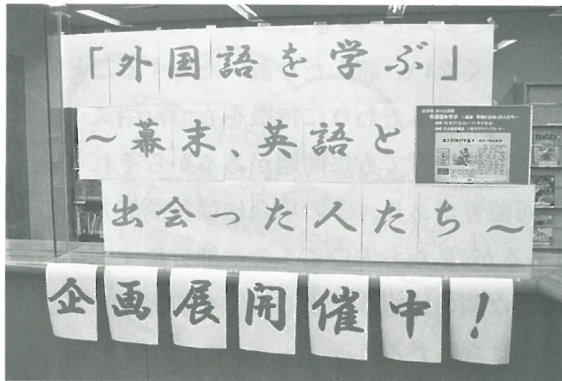 「外国語を学ぶ」
～幕末、英語と
出会った人たち～
企画展開催中！